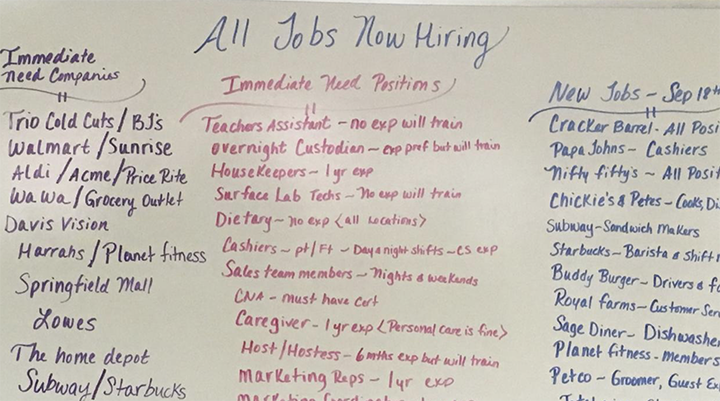 All Jobs Now Hiring
Immediate
need Companies
Trio Cold Cuts / BJ's
Walmart / Sunrise
Aldi / Acme / Price Rite
Wawa / Grocery Outlet
Davis Vision
Harrahs / Planet fitness
Springfield Mall
Lowes
The home depot
Subway / Starbucks
Immediate Need Positions
Teachers Assistant - no exp will train
overnight Custodian - exp pref but will train
Housekeepers - 1 yr exp
Surface Lab Techs - No exp will train
Dietary - no exp <all locations>
Cashiers - pt/Ft - Day & night shifts - CS exp
Sales team members - Nights & weekends
CNA - must have cert
Caregiver - 1 yr exp <Personal care is fine>
Host/Hostess - 6 mths exp but will train
Marketing Reps - 1 yr exp
New Jobs - Sep 18th
Cracker Barrel - All Posi
Papa Johns - Cashiers
Nifty fifty's - All Posit
Chickie's & Petes - Cooks, Di
Subway - Sandwich Makers
Starbucks - Barista & Shift
Buddy Burger - Drivers &
Royal farms - Customer Ser
Sage Diner - Dishwashe
Planet fitness - Members
Petco - Groomer, Guest Ex